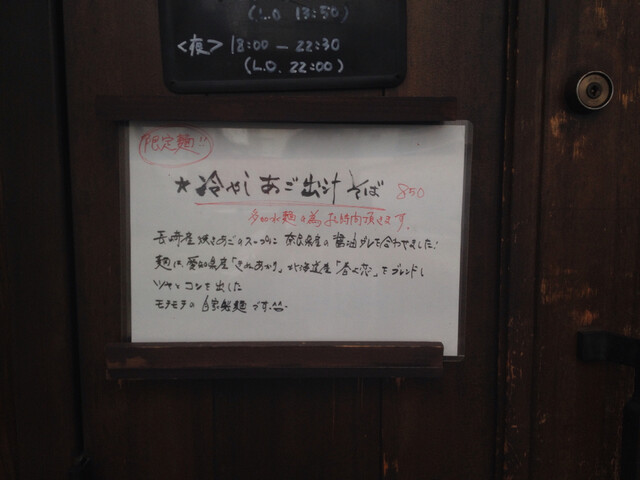 (L.O 13:50)
<夜> 18:00 − 22:30
(L.O. 22:00)
限定麺!!
★冷やしあご出汁そば 850
多加水麺の為お時間頂きます。
長崎産焼きあごのスープに奈良県産の醤油ダレを合わせました。
麺は愛知県産「きぬあかり」北海道産「春よ恋」をブレンドし
ツヤとコシを出した
モチモチの自家製麺です。